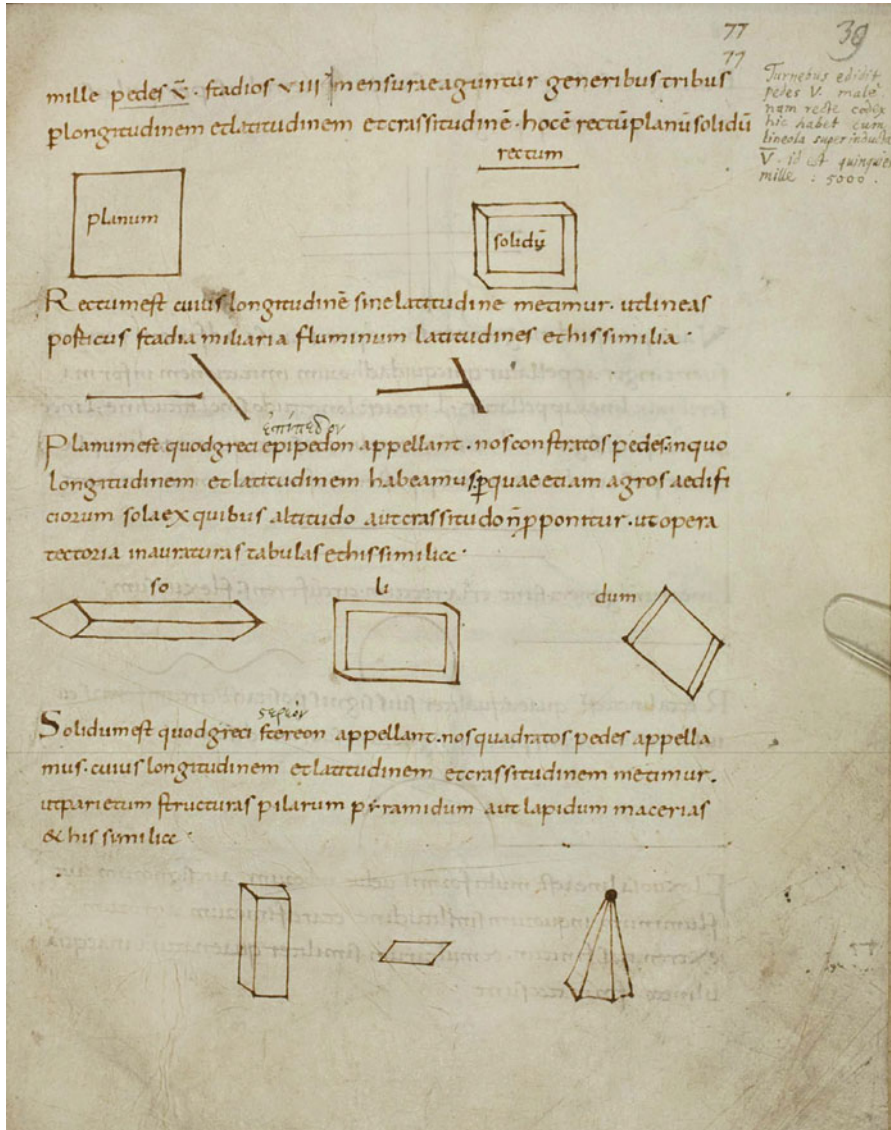 77
39
77
mille pedes v̄ · stadios VIII mensurae aguntur generibus tribus
Turnebus edidit
pedes V. male
nam recte codex
hic habet cum
lineola super inducta
V̄. id est quinquies
mille : 5000.
ꝑ longitudinem et latitudinem et crassitudinē · hoc ē rectū planū solidū
rectum
planum
solidū
Rectum est cuius longitudinē sine latitudine metimur · ut lineas
posticus stadia miliaria fluminum latitudines et his similia ·
ἐπίπεδον
Planum est quod greci epipedon appellant · nos constratos pedes · in quo
longitudinem et latitudinem habeamus ꝑ quae etiam agros aedifi
ciorum sola ex quibus altitudo aut crassitudo n̄ ꝓponitur · ut opera
tectoria inauraturas tabulas et his similia ·
so
li
dum
στερεόν
Solidum est quod greci stereon appellant · nos quadratos pedes appella
mus · cuius longitudinem et latitudinem et crassitudinem metimur ·
ut parietum structuras pilarum pyramidum aut lapidum macerias
& his similia ·